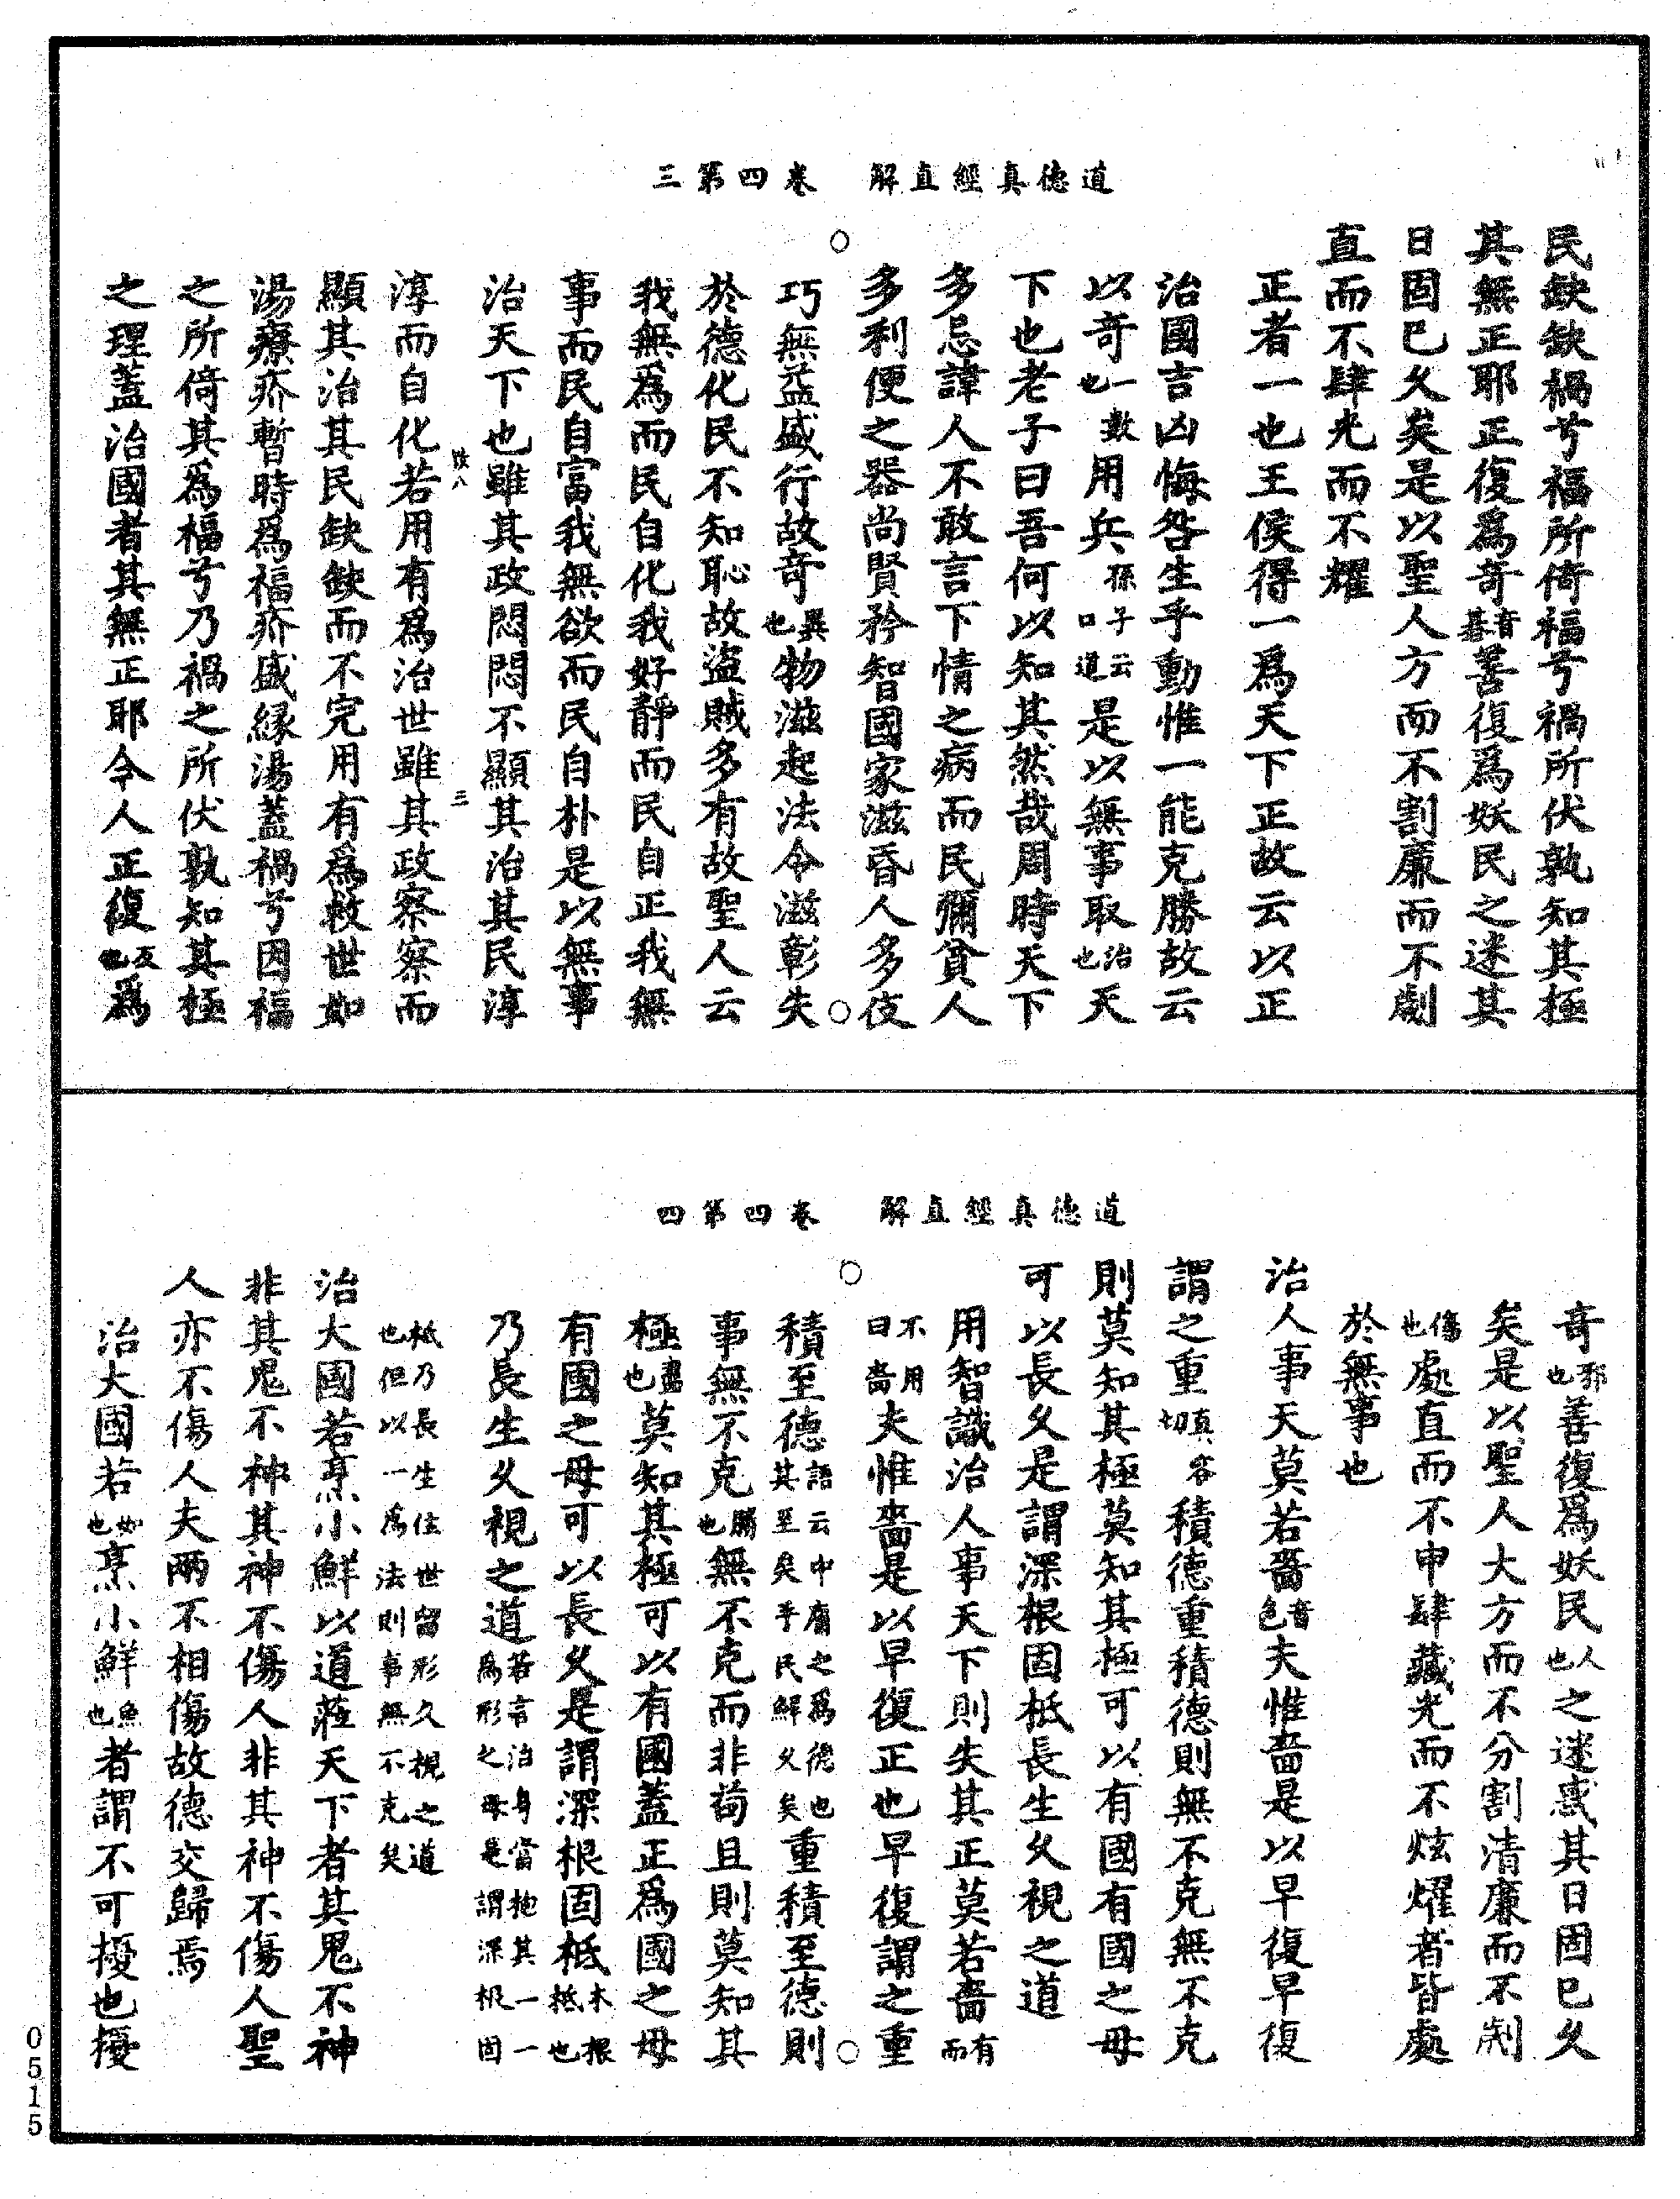 道德真經直解　卷四第三
民缺缺禍兮福所倚福兮禍所伏孰知其極
其無正耶正復為奇音基善復為妖民之迷其
日固已久矣是以聖人方而不割廉而不劌
直而不肆光而不耀
正者一也王侯得一為天下正故云以正
治國吉凶悔咎生乎動惟一能克勝故云
以奇一數也用兵孫子云口道是以無事取治也天
下也老子曰吾何以知其然哉周時天下
多忌諱人不敢言下情之病而民彌貧人
多利便之器尚賢矜智國家滋昏人多伎
巧無益盛行故奇異也物滋起法令滋彰失
於德化民不知恥故盜賊多有故聖人云
我無為而民自化我好靜而民自正我無
事而民自富我無欲而民自朴是以無事
治天下也雖其政悶悶不顯其治其民淳
淳而自化若用有為治世雖其政察察而
三
顯其治其民缺缺而不完用有為救世如
湯療疥暫時為福疥盛緣湯蓋禍兮因福
之所倚其為福兮乃禍之所伏孰知其極
之理蓋治國者其無正耶令人正復反也為
道德真經直解　卷四第四
奇邪也善復為妖民人也之迷惑其日固已久
矣是以聖人大方而不分割清廉而不劌
傷也處直而不申肆藏光而不炫燿者皆處
於無事也
治人事天莫若嗇音色夫惟嗇是以早復早復
謂之重直容切積德重積德則無不克無不克
則莫知其極莫知其極可以有國有國之母
可以長久是謂深根固柢長生久視之道
用智識治人事天下則失其正莫若嗇有而
不用曰嗇夫惟嗇是以早復正也早復謂之重
積至德語云中庸之為德也其至矣乎民鮮久矣重積至德則
事無不克勝也無不克而非苟且則莫知其
極盡也莫知其極可以有國蓋正為國之母
有國之母可以長久是謂深根固柢木根柢也
乃長生久視之道若言治身當抱其一一為形之母是謂深根固
柢乃長生住世留形久視之道也但以一為法則事無不克矣
治大國若烹小鮮以道蒞天下者其鬼不神
非其鬼不神其神不傷人非其神不傷人聖
人亦不傷人夫兩不相傷故德交歸焉
治大國若如也烹小鮮魚也者謂不可擾也擾
0515